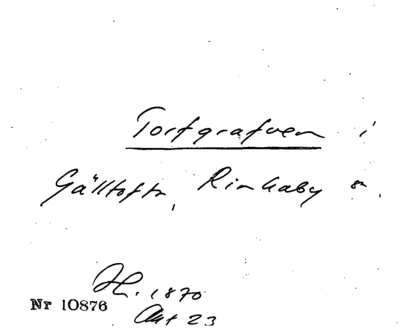 Torfgrafven i
Gälltofta, Rinkaby sn.
H. 1870
Akt 23
Nr 10876